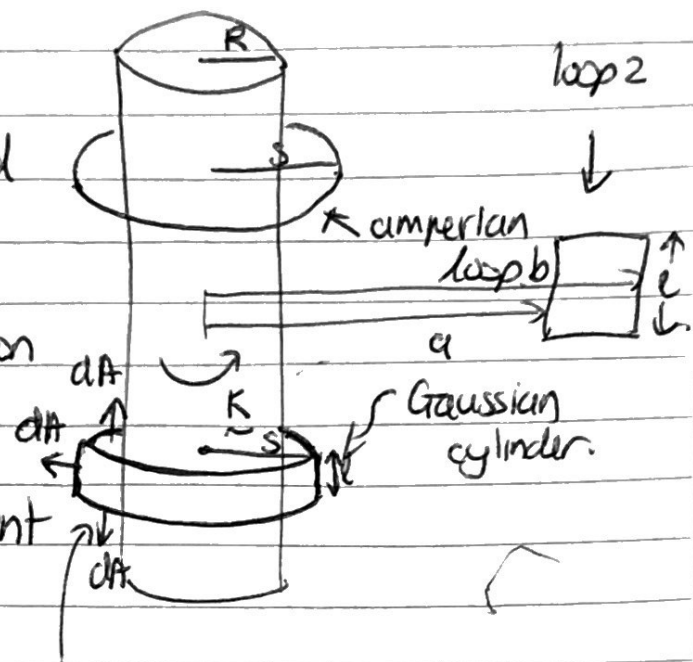 R
loop 2
S
amperian
loop b
l
a
dA
K
dA
S
l
Gaussian
cylinder.
nt
dA